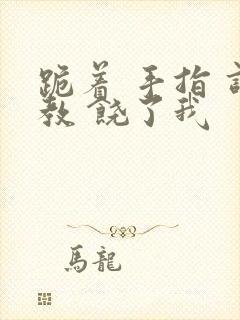 跪着 手指 调
教 饶了我
馬龍